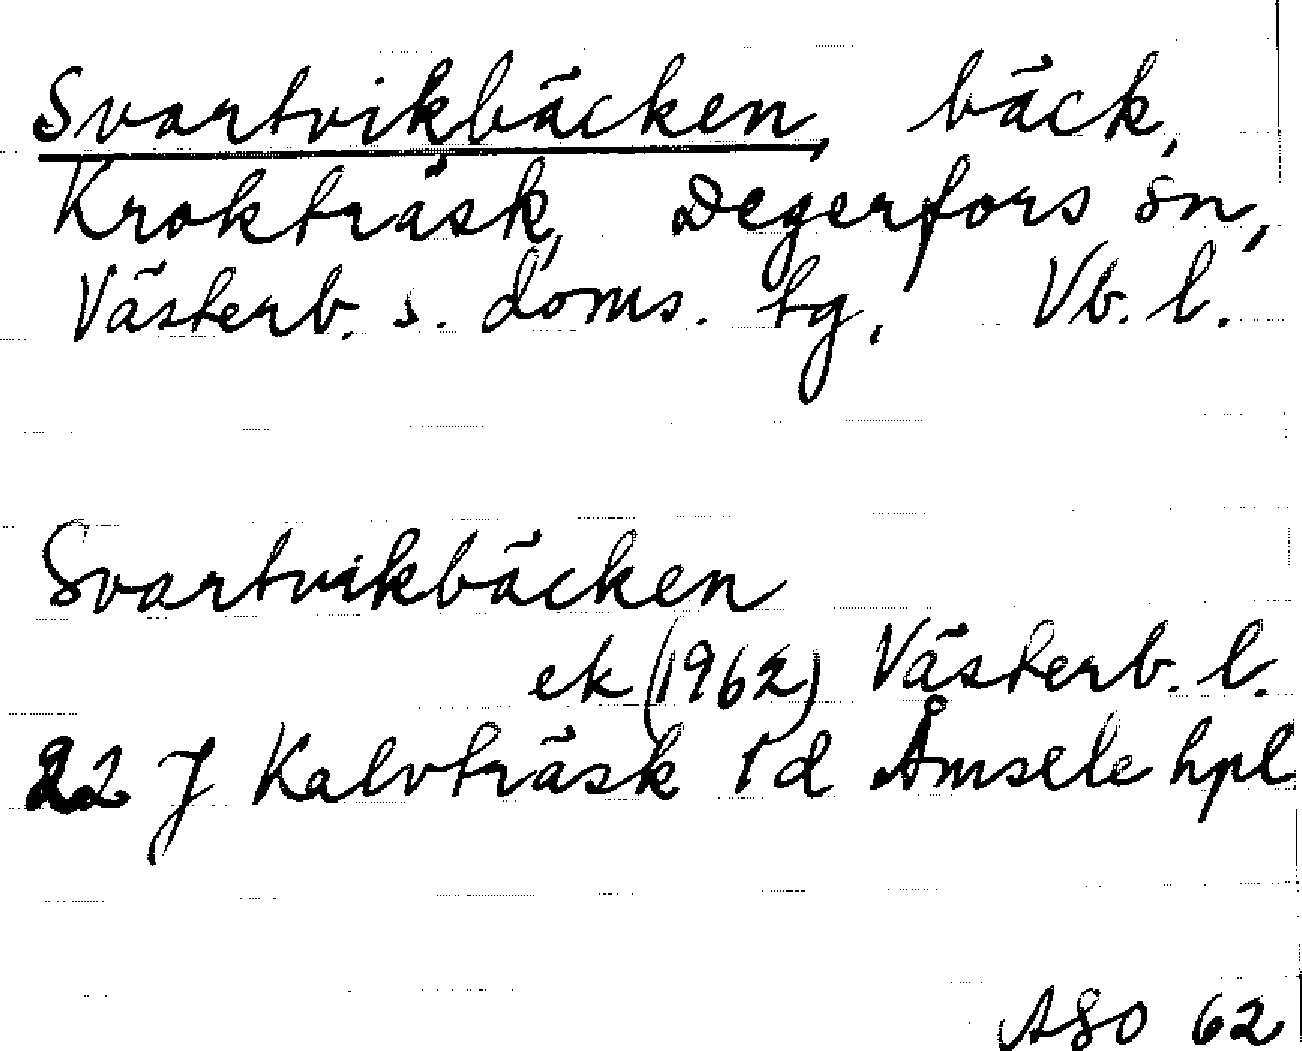 Svartvikbäcken, bäck,
Kroktråsk, Degerfors sn,
Västerb. s. doms. tg, Vb. l.
Svartvikbäcken
ek (1962) Västerb. l.
22 J Kalvträsk Id Åmsele hpl
ASO 62